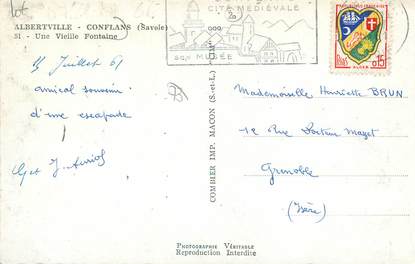 ALBERTVILLE - CONFLANS (Savoie)
51 - Une Vieille Fontaine
CITÉ MEDIÉVALE
son MUSÉE
REPUBLIQUE FRANÇAISE
0,15
ALGER
15 Juillet 61
amical souvenir
d'une escapade
COMBIER IMP. MACON (S.-et-L.) - CIM
Mademoiselle Henriette BRUN
12 Rue Docteur Mazet
Grenoble
(Isère)
PHOTOGRAPHIE VÉRITABLE
Reproduction Interdite